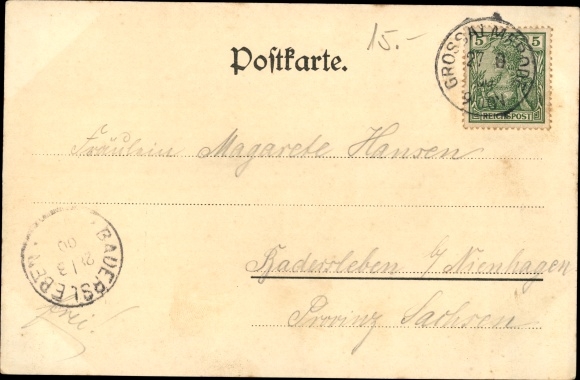 15.-
Postkarte.
5 5
REICHSPOST
GROSSALMERODE
27 8
Fräulein Magarete Hansen
BADERSLEBEN
Badersleben b/ Nienhagen
frei!
Provinz Sachsen